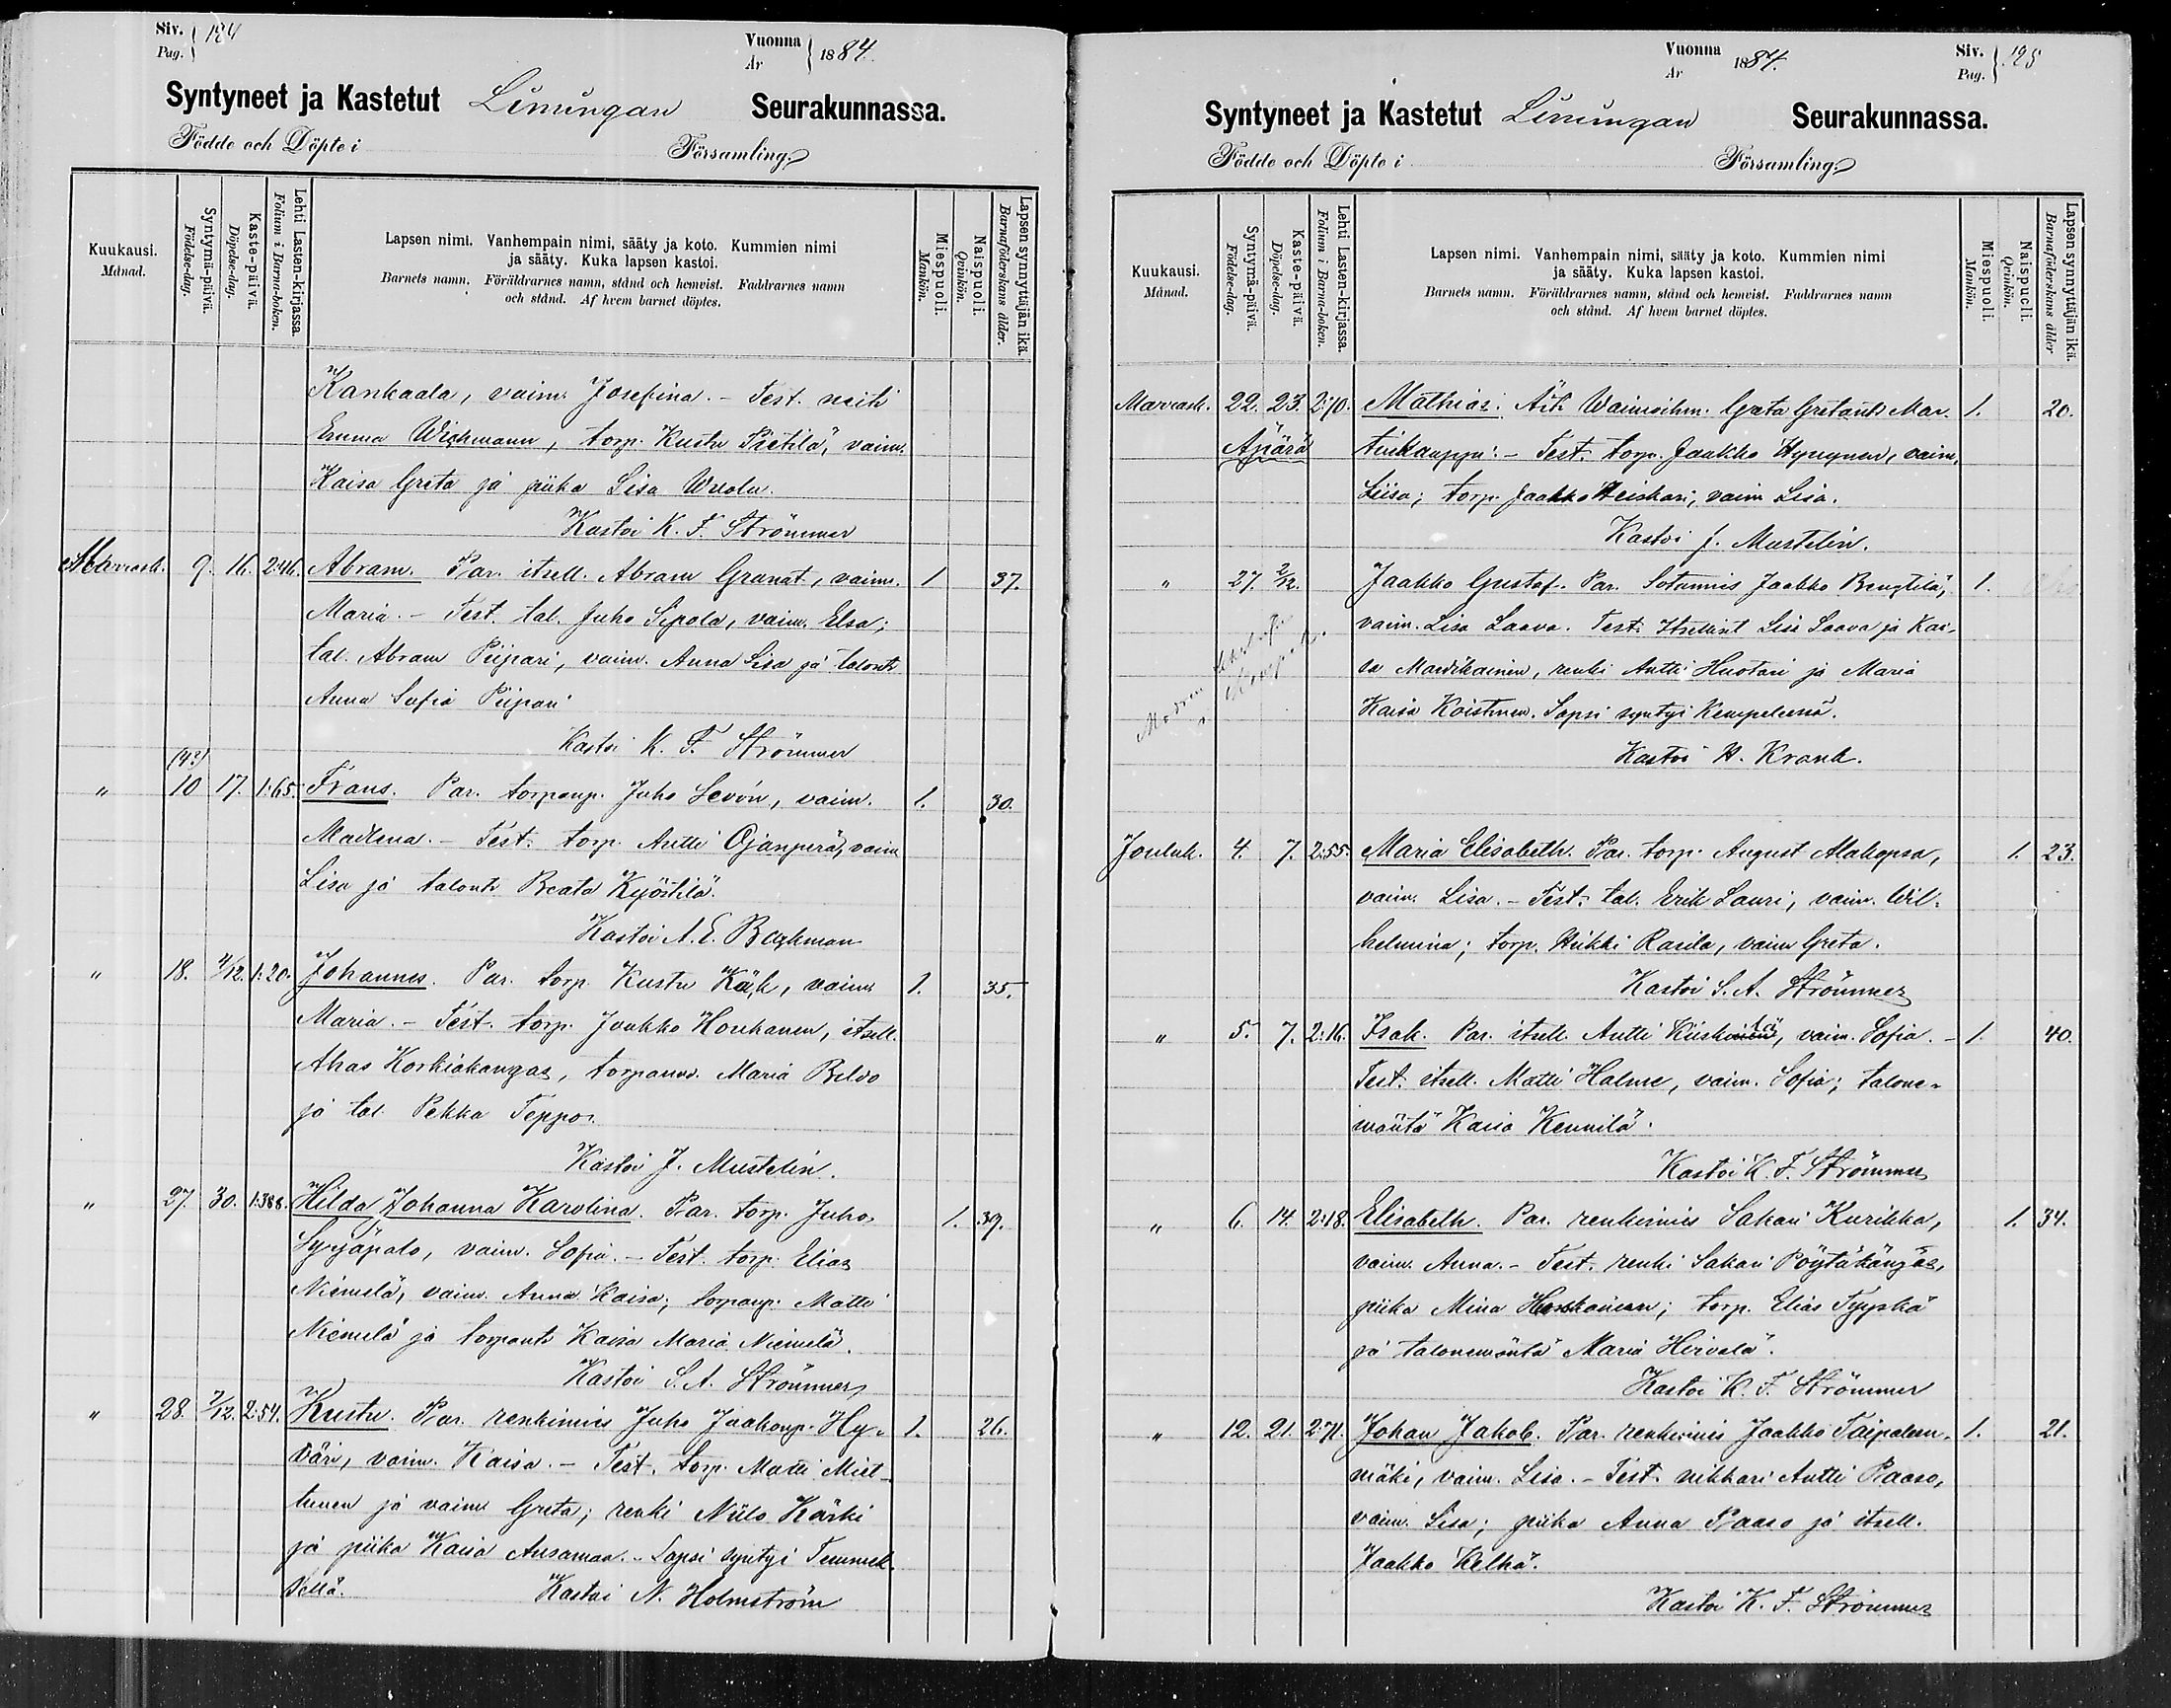 Siv. 124
Pag.
Vuonna 1884.
År
Syntyneet ja Kastetut Limingan Seurakunnassa.
Födde och Döpte i Församling.
Kuukausi.
Månad.
Syntymä-päivä.
Födelse-dag.
Kaste-päivä.
Döpelse-dag.
Lehti Lasten-kirjassa.
Folium i Barna-boken.
Lapsen nimi. Vanhempain nimi, sääty ja koto. Kummien nimi
ja sääty. Kuka lapsen kastoi.
Barnets namn. Föräldrarnes namn, stånd och hemvist. Faddrarnes namn
och stånd. Af hvem barnet döptes.
Miespuoli.
Mankön.
Naispuoli.
Qvinkön.
Lapsen synnyttäjän ikä.
Barnaföderskans ålder.
Kankaala, vaim. Josefina. - Test. neiti
Emma Wichmann, torp. Kustu Pietilä, vaim.
Kaisa Greta ja piika Lisa Wuolu.
Kastoi K. F. Strömmer
Marrask. 9. 16. 2:46. Abram. Par. itsell. Abram Granat, vaim. 1 37.
Maria. - Test. tal. Juho Sipola, vaim. Elsa;
tal. Abram Piipari, vaim. Anna Lisa ja talont.
Anna Sofia Piipari
Kastoi K. F. Strömmer
" 10 17. 1:65. Frans. Par. torpanp. Juho Levón, vaim. 1. 30.
Madlena. - Test. torp. Antti Ojanperä, vaim
Lisa ja talont. Beata Kyöstilä.
Kastoi A. E. Backman
" 18. 1/12. 1:20. Johannes. Par. torp. Kustu Käck, vaim 1. 35.
Maria. - Test. torp. Jaakko Honkanen, itsell.
Ahas Korkiakangas, torpanv. Maria
ja tal. Pekka Teppo.
Kastoi J. Mustelin.
" 27. 30. 1:388. Hilda Johanna Karolina. Par. torp. Juho 1. 39.
Syrjäpalo, vaim. Sofia. - Test. torp. Elias
Niemelä, vaim. Anna Kaisa; torpanp. Matti
Niemelä ja torpant. Kaisa Maria Niemelä.
Kastoi S. A. Strömmer
" 28. 7/12. 2:54. Kustu. Par. renkimies Juho Jaakonp. Hy- 1. 26.
väri, vaim. Kaisa. - Test. torp. Matti Miet-
tunen ja vaim Greta; renki Niilo Kärki
ja piika Kaisa Ansamaa. - Lapsi syntyi Temmek-
sellä. Kastoi N. Holmström
Vuonna 1884.
År
Siv. 125
Pag.
Syntyneet ja Kastetut Limingan Seurakunnassa.
Födde och Döpte i Församling.
Kuukausi.
Månad.
Syntymä-päivä.
Födelse-dag.
Kaste-päivä.
Döpelse-dag.
Lehti Lasten-kirjassa.
Folium i Barna-boken.
Lapsen nimi. Vanhempain nimi, sääty ja koto. Kummien nimi
ja sääty. Kuka lapsen kastoi.
Barnets namn. Föräldrarnes namn, stånd och hemvist. Faddrarnes namn
och stånd. Af hvem barnet döptes.
Miespuoli.
Mankön.
Naispuoli.
Qvinkön.
Lapsen synnyttäjän ikä.
Barnaföderskans ålder
Marrask. 22. 23. 2:70. Mathias. Äiti Waimoihm. Greta Mar- 1. 20.
Äpärä tinkauppu. - Test. torp. Jaakko Hyrynen, vaim.
Liisa; torp. Jaakko Heiskari, vaim Lisa.
Kastoi J. Mustelin.
" 27. 2/12. Jaakko Gustaf. Par. Sotamies Jaakko Bengtilä, 1.
vaim. Lisa Laava. Test. Itselliset Lisa Laava ja Kai-
sa Manikainen, renki Antti Huotari ja Maria
Kaisa Koistinen. Lapsi syntyi Kempeleessä.
Kastoi H. Krank.
Jouluk. 4. 7. 2:55. Maria Elisabeth. Par. torp. August Alahopsa, 1. 23.
vaim. Lisa. - Test. tal. Erik Lauri, vaim. Wil-
helmina; torp. Heikki Rasila, vaim Greta.
Kastoi S. A. Strömmer
" 5. 7. 2:16. Isak. Par. itsell. Antti, vaim. Sofia. - 1. 40.
Test. itsell. Matti Halme, vaim. Sofia; talone-
mäntä Kaisa Kennilä.
Kastoi K. F. Strömmer
" 6. 14. 2:18. Elisabeth. Par. renkimies Sakari Kurikka, 1. 34.
vaim. Anna. - Test. renki Sakari Pöytäkangas,
piika Mina; torp. Elias Tyyskä
ja talonemäntä Maria Hirvelä.
Kastoi K. F. Strömmer
" 12. 21. 2:71. Johan Jakob. Par. renkimies Jaakko Taipaleen- 1. 21.
mäki, vaim. Lisa. - Test. nikkari Antti Paaso,
vaim. Lisa; piika Anna Paaso ja itsell.
Jaakko Kelhä.
Kastoi K. F. Strömmer